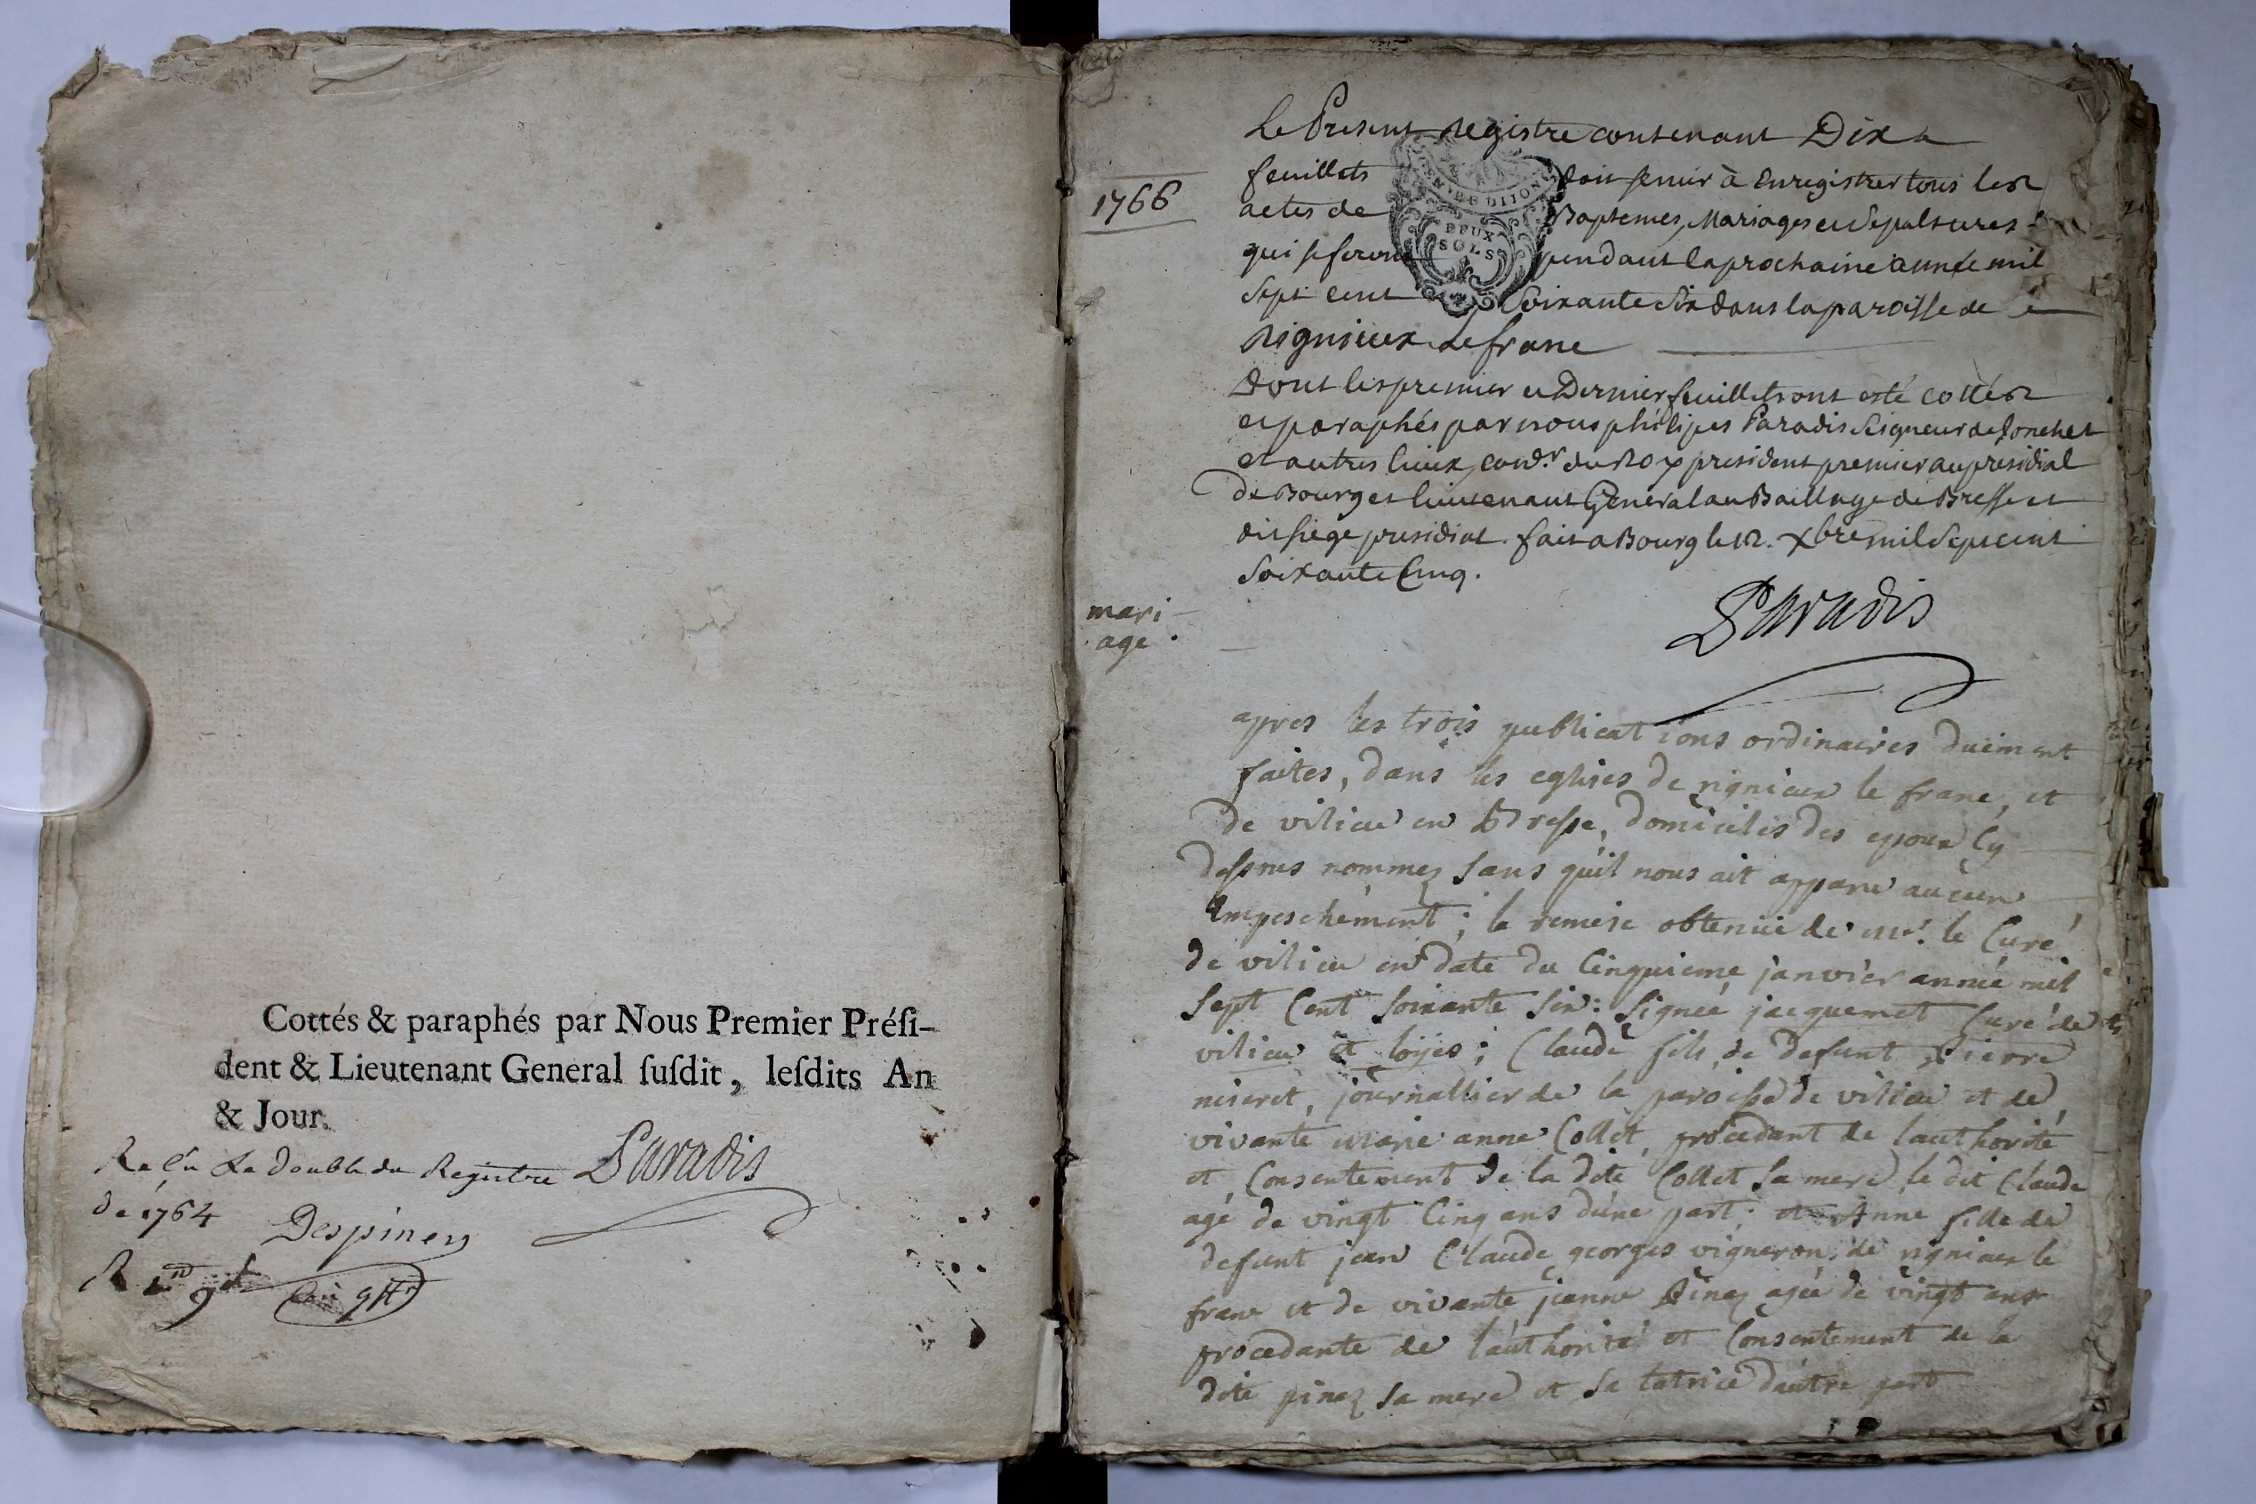 Cottés & paraphés par Nous Premier Présſi-
dent & Lieutenant General ſuſdit, leſdits An
& Jour.
Paradis
Reçu Le double du Registre
de 1764
Despiney
1766
Le Present Registre contenant Dix
feuillets doit servir à Enregistrer tous les
actes de Baptemes, Mariages et Sepultures
qui se feront pendant la prochaine année mil
Sept cent Soixante Six dans la paroisse de
Rignieux Lefranc
Dont les premier et Dernier feuillets ont esté cottés
et paraphés par nous philipes Paradis Seigneur de
et autres lieux, con.er du Roy president premier au presidial
de Bourg et lieutenant General au Baillage de Bresse et
dit siege presidial. fait a Bourg le 12. Xbre mil Sept cent
Soixante Cinq.
Paradis
DIJON
DEUX
SOLS
mari
age
apres les trois publications ordinaires duëment
faites, dans les eglises de rignieux le franc, et
de vilieu en Bresse, domiciles des epoux Cy
dessous nommez sans qu'il nous ait apparu aucun
Empeschement; la remise obtenuë de mr. le Curé
de vilieu en date du Cinquieme janvier année mil
sept Cent soixante six: signée jacquemet Curé de
vilieu et loyes; Claude fils de defunt Pierre
journallier de la paroisse de vilieu et de
vivante marie anne Collet, procedant de l'authorité
et Consentement de la dite Collet sa mere, le dit Claude
agé de vingt Cinq ans d'une part; et Anne fille de
defunt jean Claude georges vigneron, de rignieux le
franc et de vivante jeanne Pinez agée de vingt ans
procedante de l'authorité et Consentement de la
dite pinez sa mere et sa tutrice d'autre part